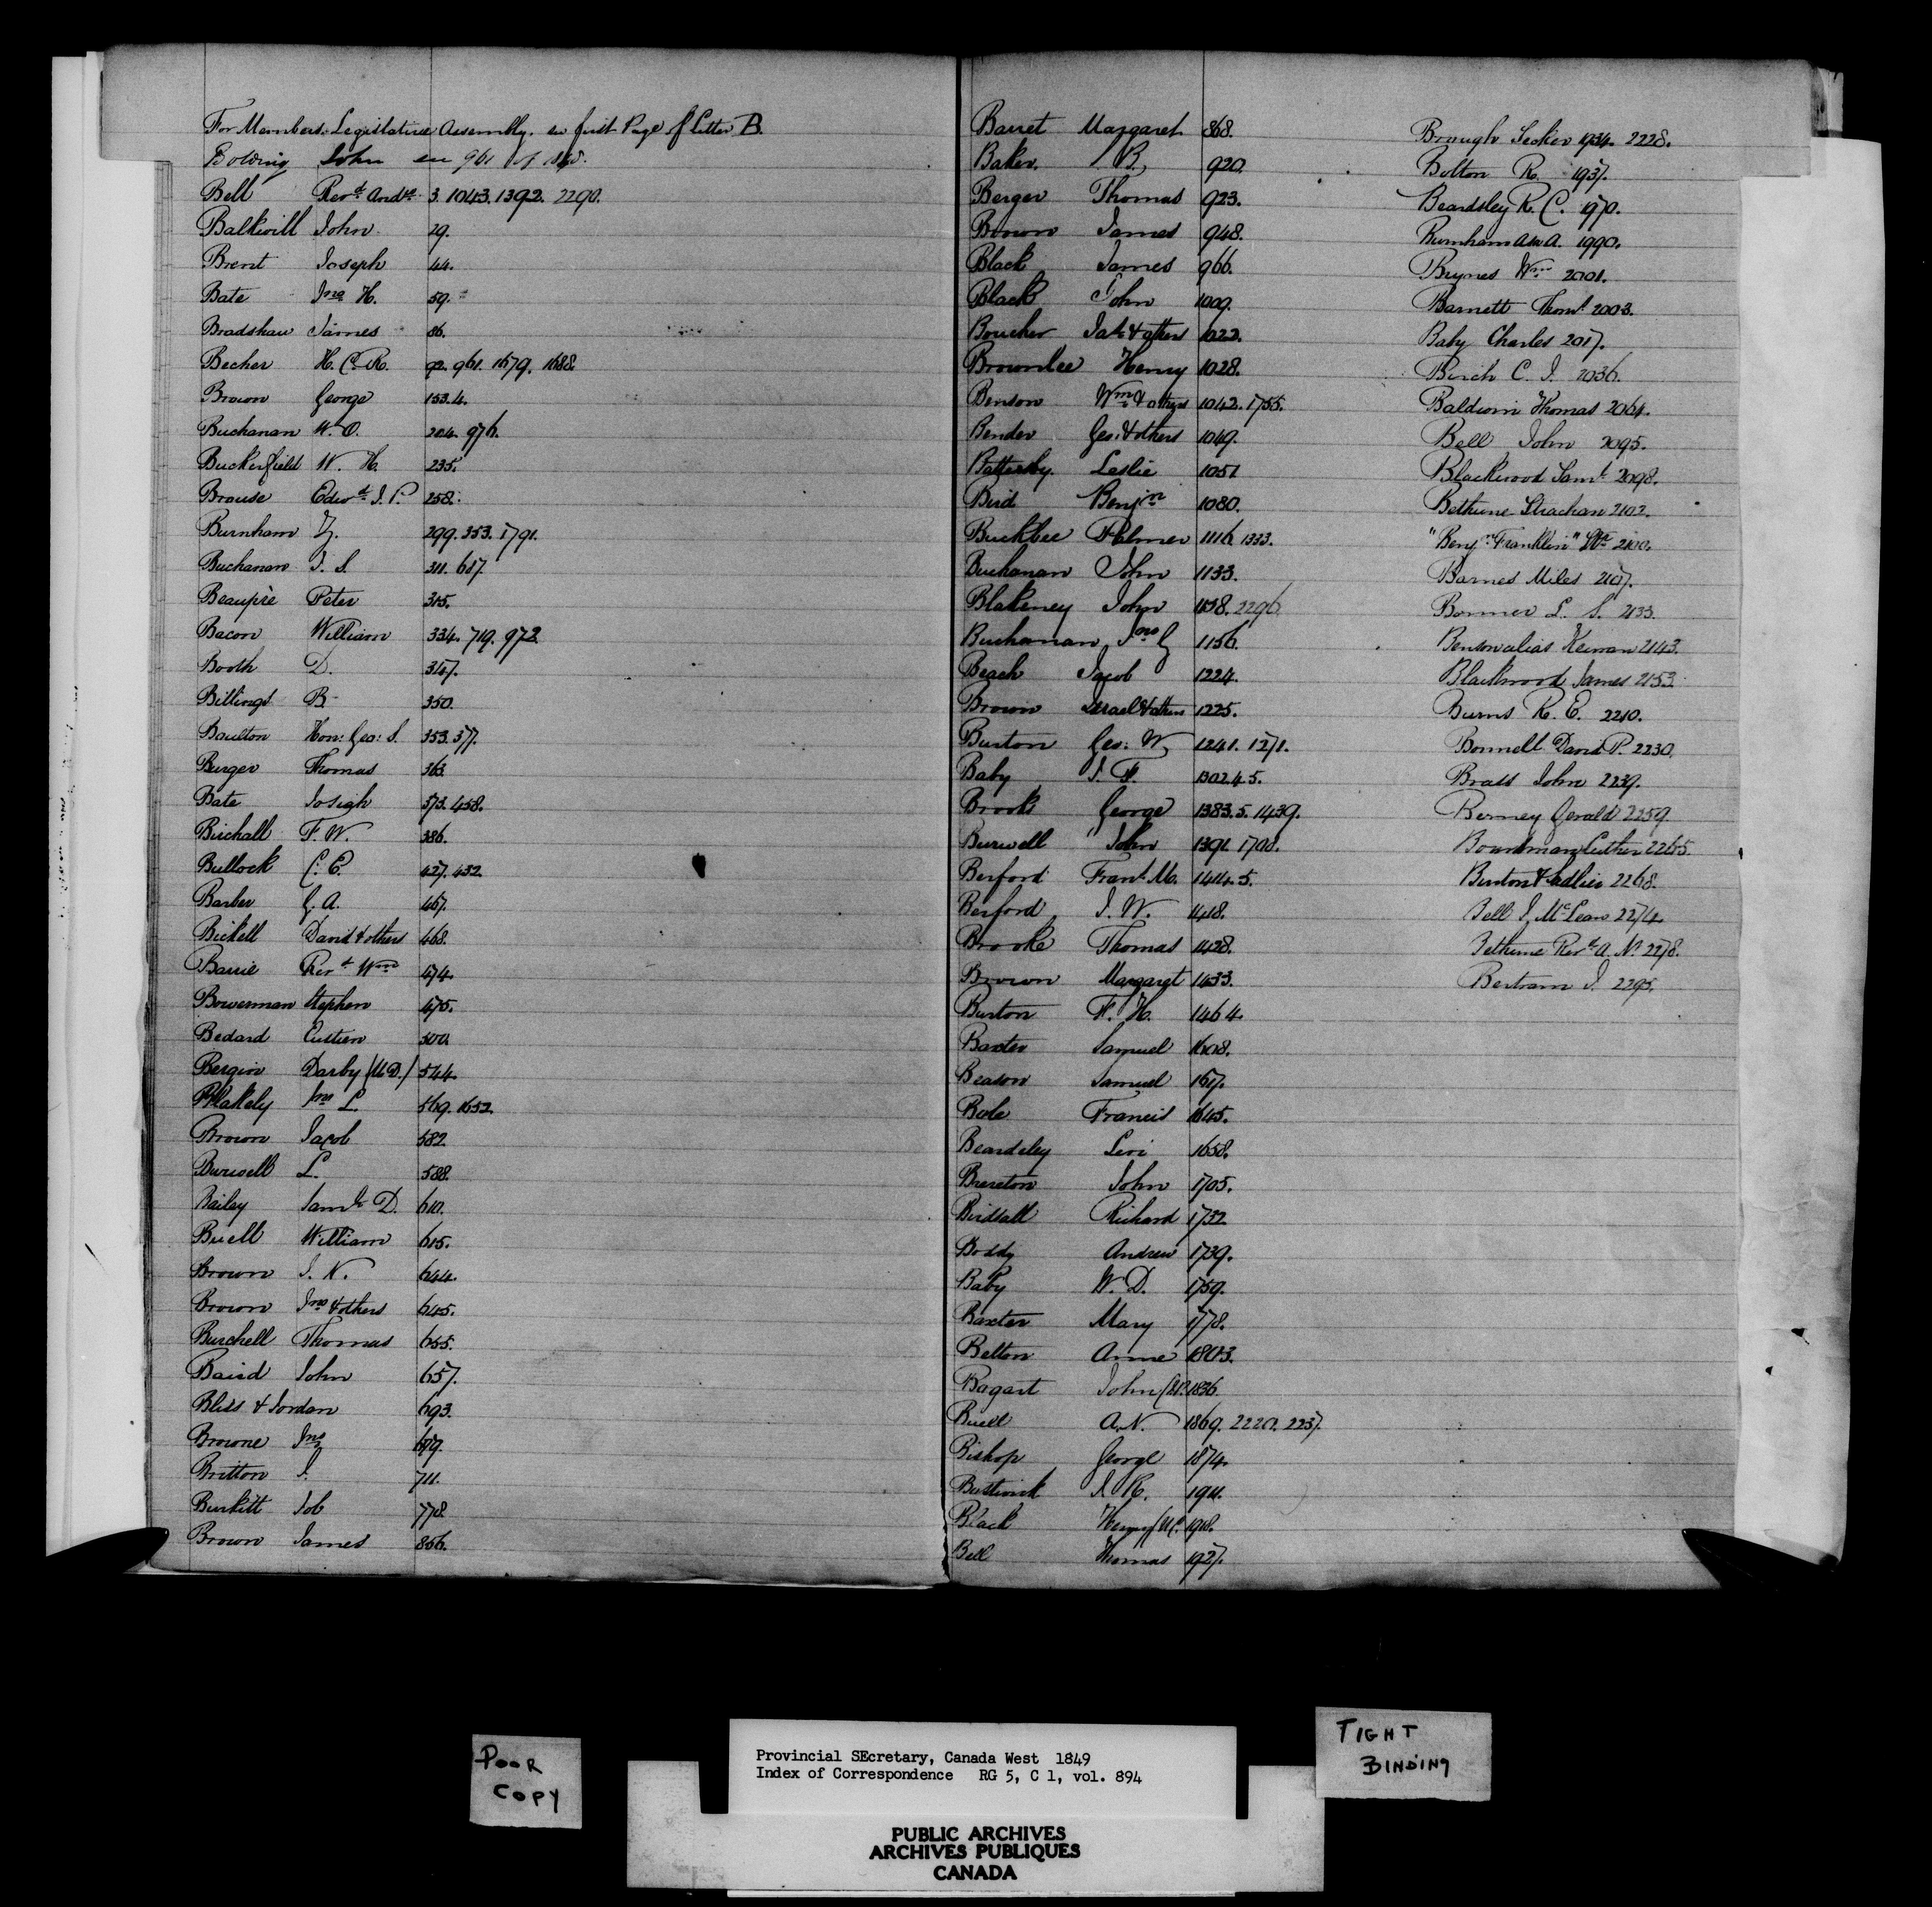 For Members Legislative Assembly. see first Page of Letter B.
Bowring John see 961 of 1848.
Bell Revd. Andw. 3. 1043. 1392. 2290.
Balkwill John 29.
Brent Joseph 44.
Bate Jno. H. 59.
Bradshaw James 86.
Becher H. C. R. 92. 961. 1679. 1688.
Brown George 153.4.
Buchanan W. O. 204. 976.
Buckerfield W. H. 235.
Brouse Edwd. J. P. 258.
Burnham Z. 299. 353. 1791.
Buchanan J. S. 311. 617.
Beaupré Peter 315.
Bacon William 334. 719. 972.
Booth D. 347.
Billings B. 350.
Boulton Hon: Geo: S. 353. 377.
Burger Thomas 363.
Bate Joseph 373. 458.
Birchall F. W. 386.
Bullock C. E. 427. 432.
Barber G. A. 467.
Bickell David & others 468.
Barrie Revd. Wm. 474.
Bowerman Stephen 475.
Bedard 500.
Bergin Darby (M.D.) 544.
Blakely Jno L. 569. 1652.
Brown Jacob 582.
Burwell L. 588.
Bailey Saml. D. 610.
Buell William 615.
Brown J. N. 644.
Brown Jno & others 645.
Burchell Thomas 655.
Baird John 657.
Bliss & Jordan 693.
Browne Jno 679.
Britton J. 711.
Burkitt Job 778.
Brown James 856.
Barret Margaret 868.
Baker B. 920.
Berger Thomas 923.
Brown James 948.
Black James 966.
Black John 1009.
Boucher Jas. & others 1022.
Brownlee Henry 1028.
Benson Wm. & others 1042. 1755.
Bender Geo: & others 1049.
Battersby Leslie 1051.
Bird Benjn 1080.
Buckbee Palmer 1116. 1333.
Buchanan John 1133.
Blakeney John 1138. 2296.
Buchanan Jno G 1156.
Beach Jacob 1224.
Brown Israel & others 1225.
Burton Geo: W. 1241. 1271.
Baby J. F. 1302.4.5.
Brooks George 1383.5. 1439.
Burwell John 1391. 1708.
Berford Frans. M. 1414.5.
Berford J. W. 1418.
Brooke Thomas 1428.
Brown Margaret 1433.
Burton F. H. 1464.
Baxter Samuel 1608.
Beason Samuel 1617.
Bole Francis 1645.
Beardsley Levi 1658.
Brereton John 1705.
Birdsall Richard 1732.
Boddy Andrew 1739.
Baby W. D. 1759.
Baxter Mary 1778.
Belton Anne 1803.
Bagart John 1836.
Buell A. N. 1869. 2220. 2237.
Bishop George 1874.
Bostwick J. R. 1911.
Black Henry 1918.
Bell Thomas 1927.
Brough Secker 1934. 2228.
Bolton R. 1937.
Beardsley R. C. 1970.
Burnham Asa A. 1990.
Brynes Wm. 2001.
Barnett Thoms. 2003.
Baby Charles 2017.
Birch C. J. 2036.
Baldwin Thomas 2064.
Bell John 2095.
Blackwood Saml. 2098.
Bethune Strachan 2102.
"Benjn. Franklin" Str. 2100.
Barnes Miles 2107.
Bonner L. S. 2133.
Benson alias Keenan 2143.
Blackwood James 2153.
Burns R. E. 2210.
Bonnell David P. 2230.
Brass John 2239.
Berney Gerald 2259.
Boardman Luther 2265.
Burton & Sadlier 2268.
Bell J. McLean 2274.
Bethune Revd. A. N. 2278.
Bertram J. 2295.
POOR
COPY
Provincial SEcretary, Canada West 1849
Index of Correspondence RG 5, C 1, vol. 894
PUBLIC ARCHIVES
ARCHIVES PUBLIQUES
CANADA
TIGHT
BINDING